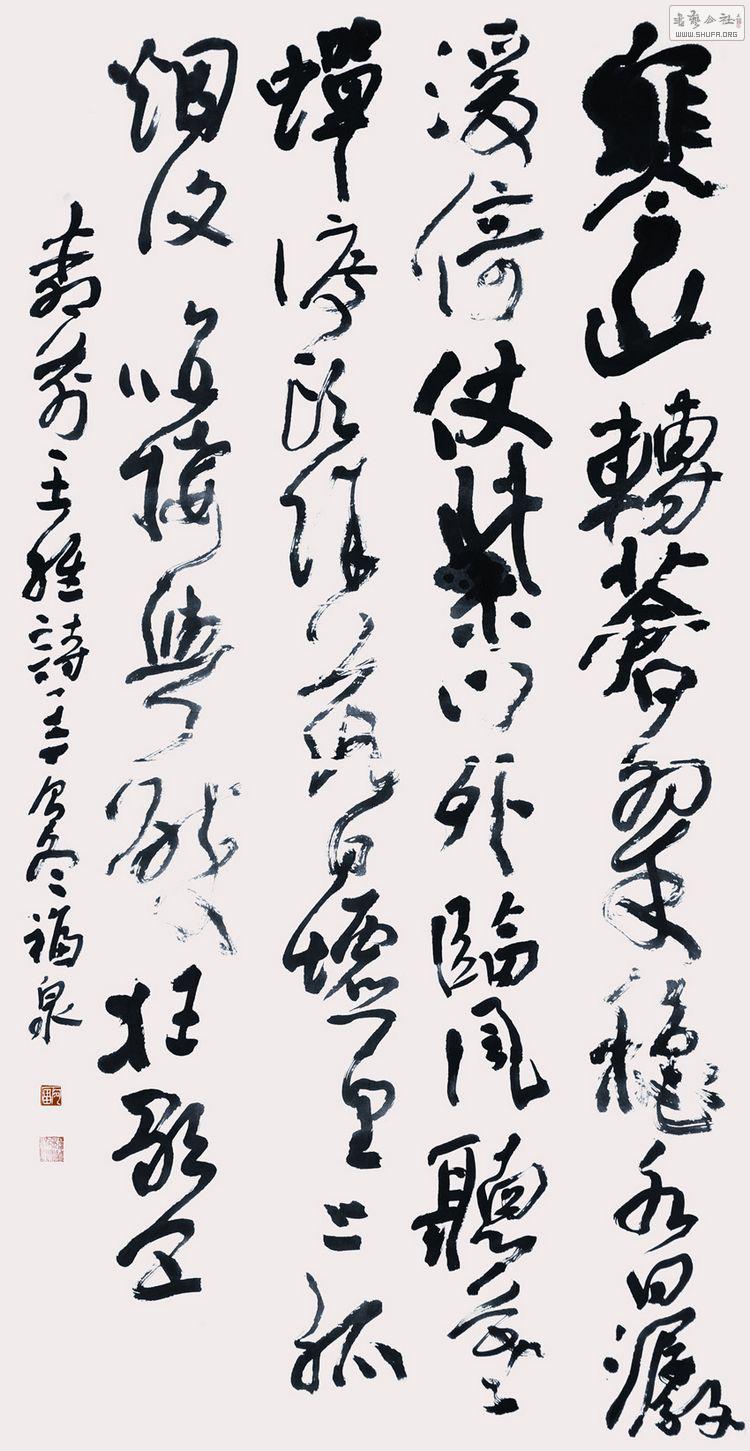 寒山轉蒼翠穐水日潺
湲倚仗柴門外臨風聽暮
蟬渡頭餘落日墟里上孤
烟復值接輿醉狂歌五
柳前王維詩一首冬福泉
WWW.SHUFA.ORG